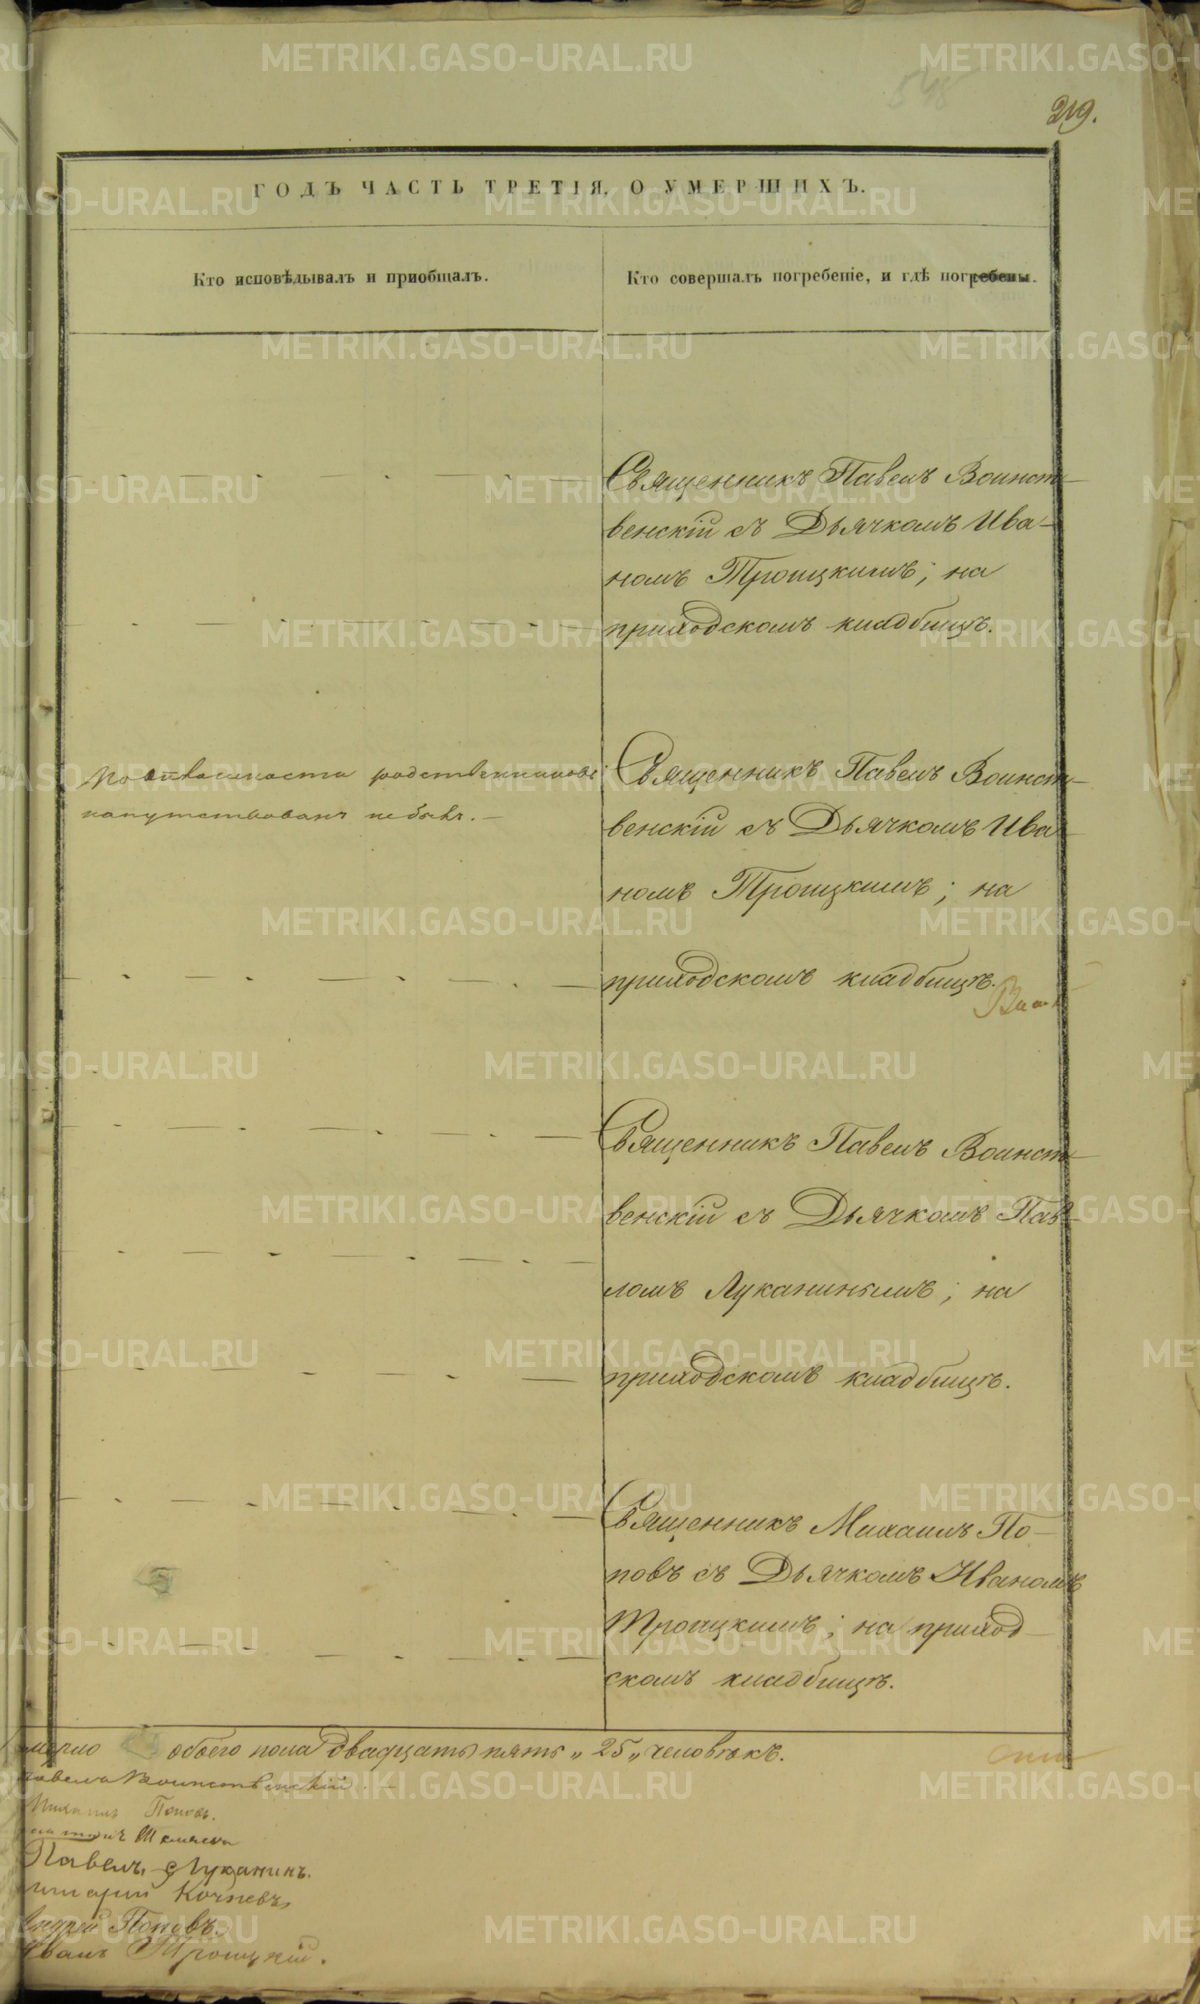 219.
ГОДЪ ЧАСТЬ ТРЕТІЯ, О УМЕРШИХЪ.
Кто исповѣдывалъ и пріобщалъ.
Кто совершалъ погребеніе, и гдѣ погребены.
Священникъ Павелъ Воинст-
венскій съ Дьячкомъ Ива-
номъ Троицкимъ; на
приходскомъ кладбищѣ.
родственниковъ
напутствованъ не былъ. —
Священникъ Павелъ Воинст-
венскій съ Дьячкомъ Ива-
номъ Троицкимъ; на
приходскомъ кладбищѣ.
Священникъ Павелъ Воинст-
венскій съ Дьячкомъ Пав-
ломъ Луканинымъ; на
приходскомъ кладбищѣ.
Священникъ Михаилъ По-
повъ съ Дьячкомъ Иваномъ
Троицкимъ; на приход-
скомъ кладбищѣ.
обоего пола двадцать пять „25„ человѣкъ.
Воинственскій. —
Михаилъ Поповъ.
Павелъ Луканинъ.
Кочневъ
Поповъ.
Иванъ Троицкій.
METRIKI.GASO-URAL.RU